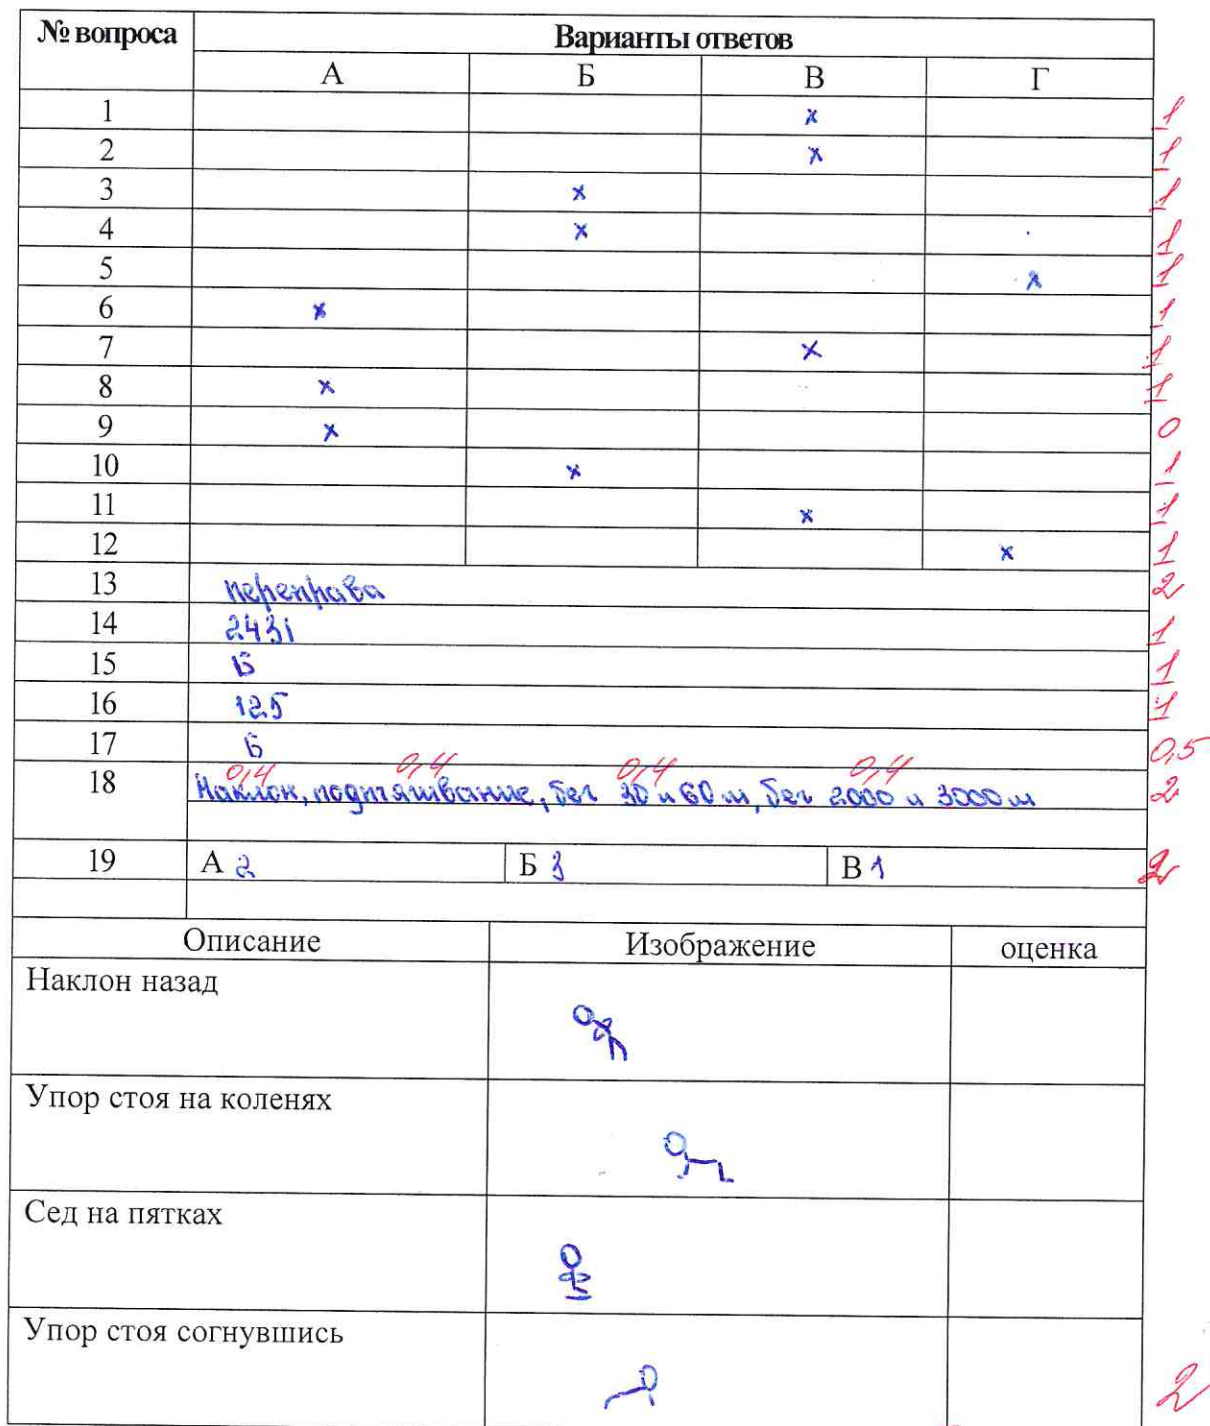 № вопроса Варианты ответов
А Б В Г
1 x 1
2 x 1
3 x 1
4 x 1
5 x 1
6 x 1
7 x 1
8 x 1
9 x 0
10 x 1
11 x 1
12 x 1
13 переправа 2
14 2431 1
15 Б 1
16 125 1
17 Б 0,5
0,4 0,4 0,4 0,4
18 Наклон, подтягивание, бег 30 и 60 м, бег 2000 и 3000 м 2
19 А 2 Б 3 В 1 2
Описание Изображение оценка
Наклон назад
Упор стоя на коленях
Сед на пятках
Упор стоя согнувшись
2